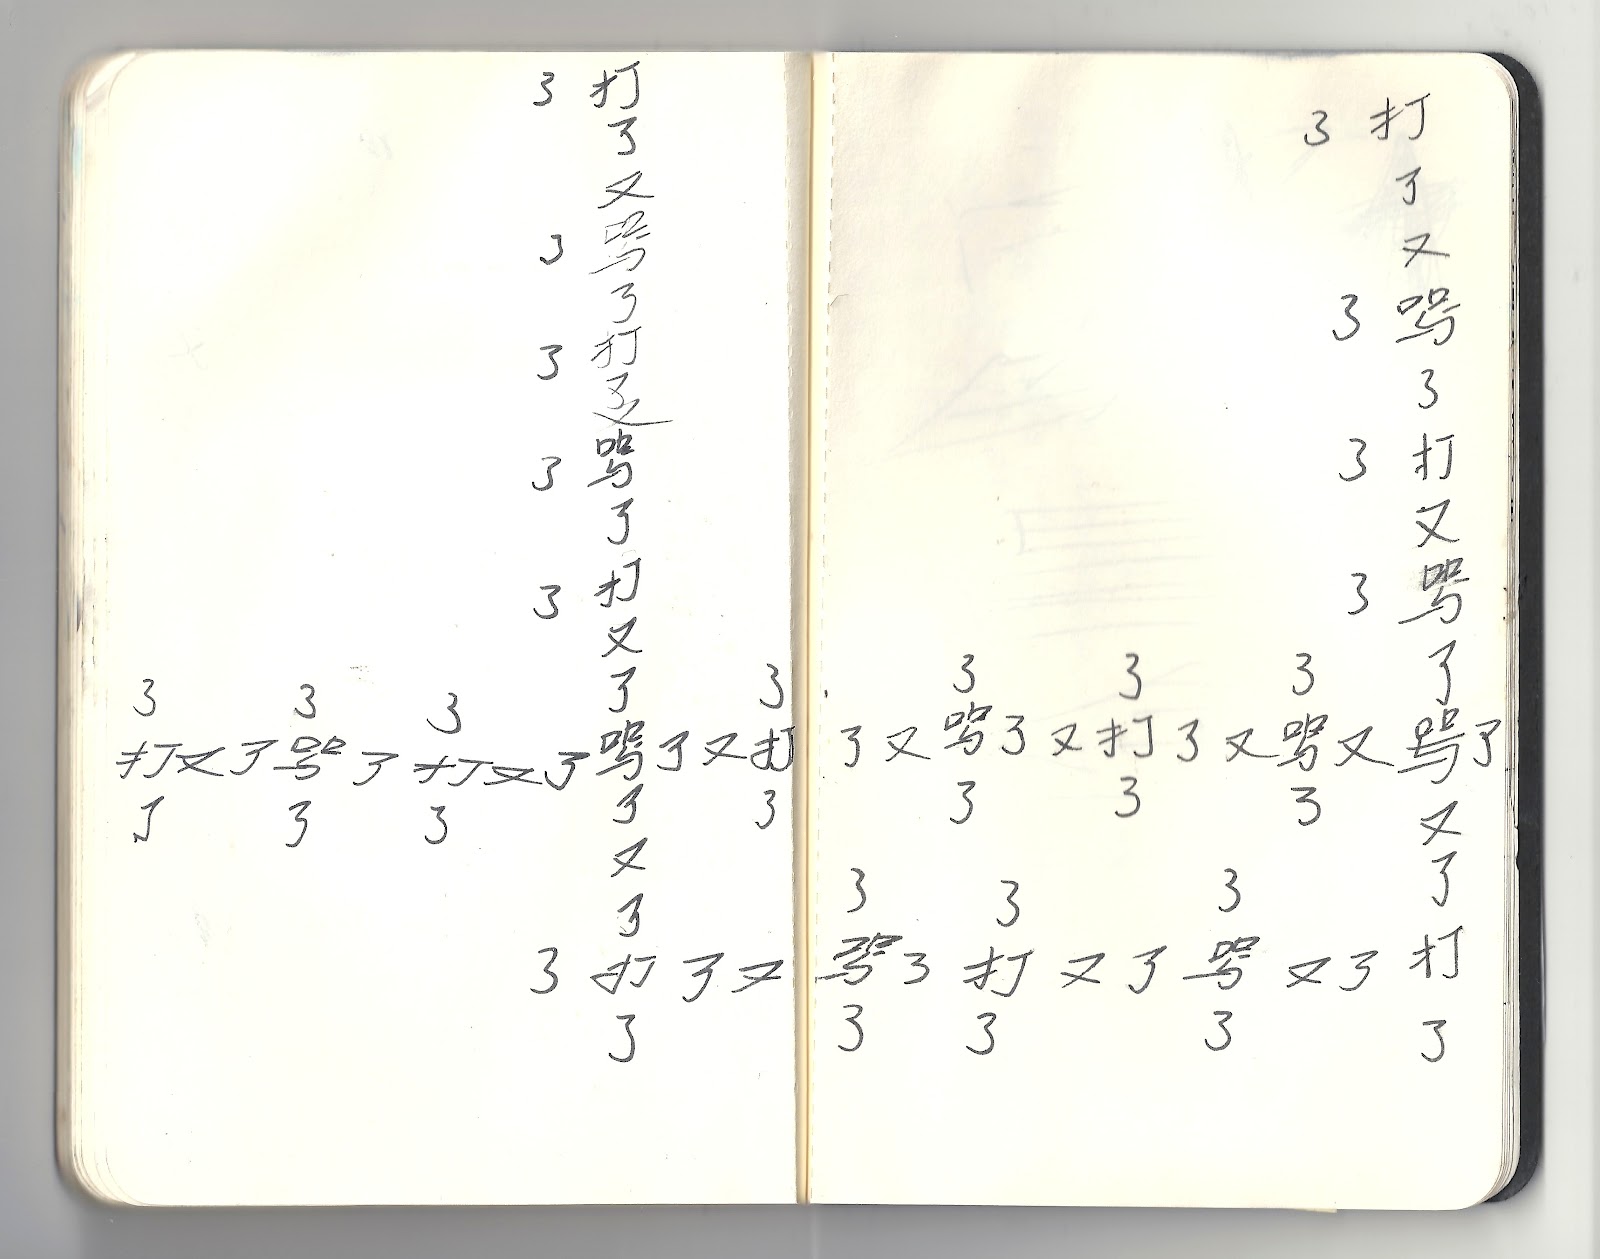 3 打
了
又
3 骂
了
3 打
了
又
3 骂
了
3 打
又
了
3 3 3 3
打又了骂了打又了骂了又打
3 3 3 了 3
又
3
3 打了又
3
3 打
了
又
3 骂
3
3 打
又
3 骂
了
3 3 3
了又骂了又打了又骂又骂了
3 3 3 又
3 3 3 了
骂3打又了骂又了打
3 3 3 3